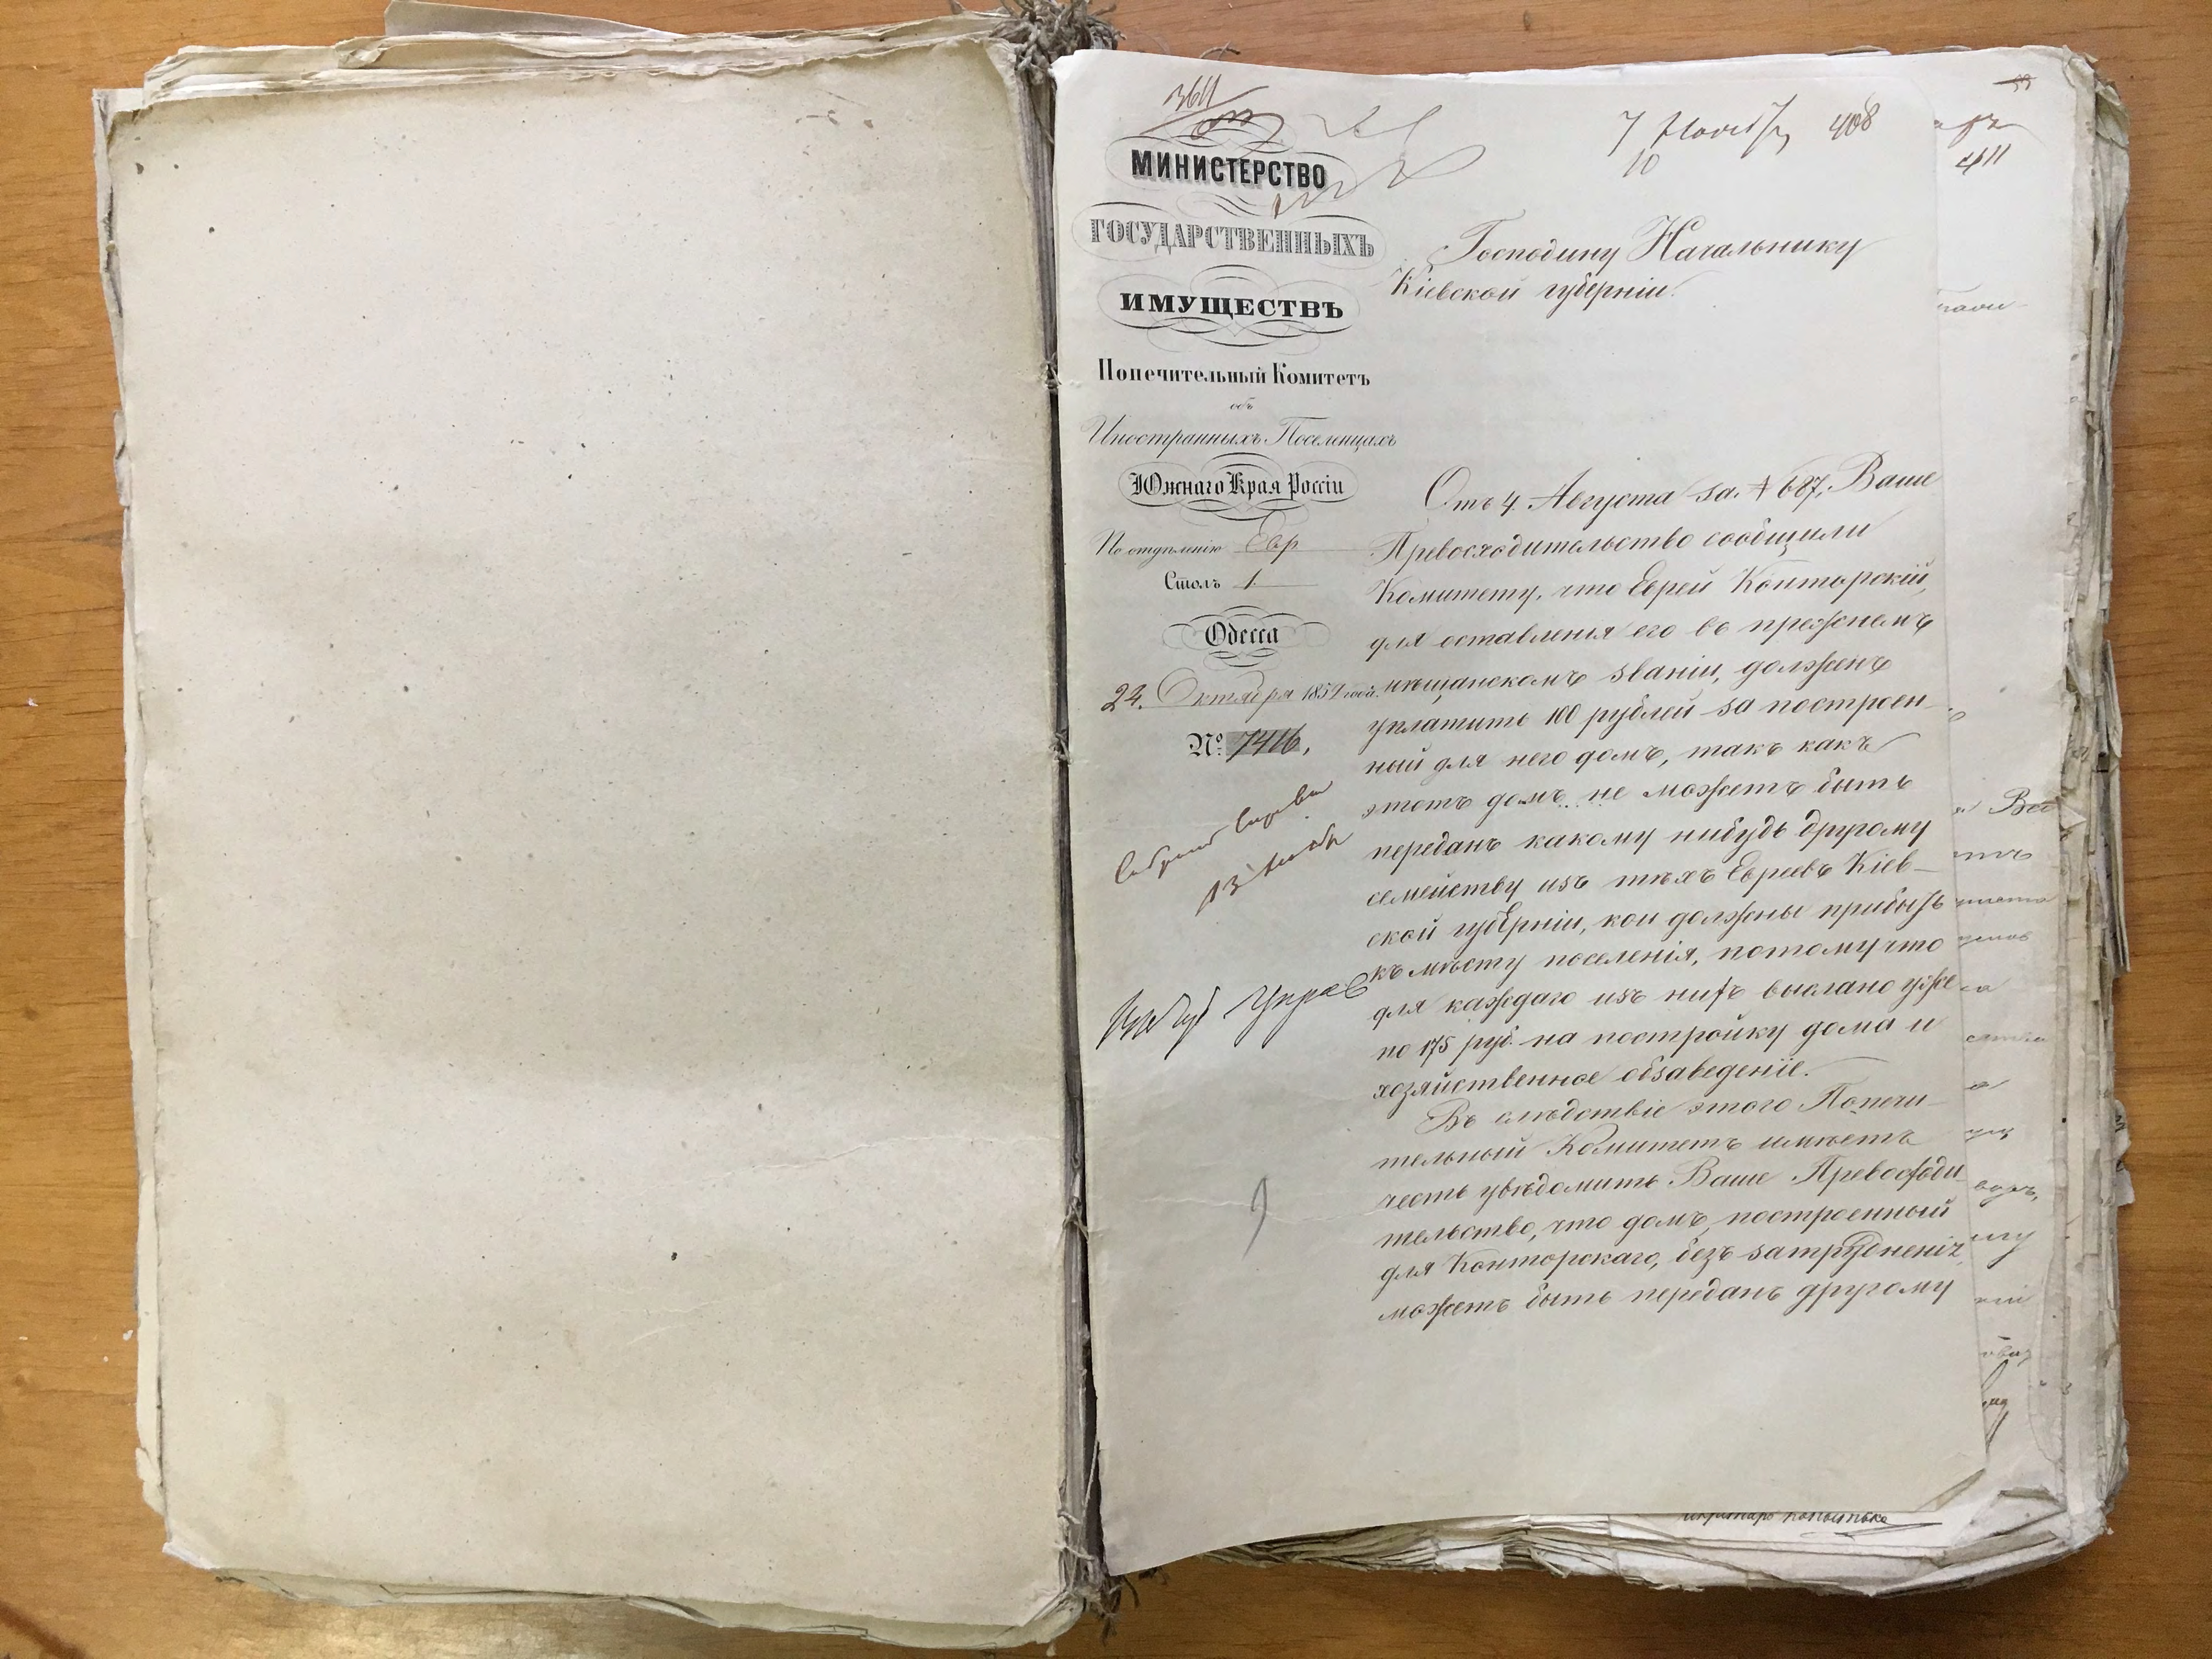 3611
7 Ноября 408
10
411
МИНИСТЕРСТВО
ГОСУДАРСТВЕННЫХЪ
ИМУЩЕСТВЪ
Попечительный Комитетъ
объ
Иностранныхъ Поселенцахъ
Южнаго Края Россіи
По отдѣленію Евр
Столъ 1
Одесса
24. Октября 185 года.
№ 7416,
Господину Начальнику
Кіевской губерніи.
Отъ 4. Августа за № 687, Ваше
Превосходительство сообщили
Комитету, что Еврей Конторскій,
для оставленія его въ прежнемъ
мѣщанскомъ званіи, долженъ
уплатить 100 рублей за построен-
ный для него домъ, такъ какъ
этотъ домъ не можетъ быть
переданъ какому нибудь другому
семейству изъ тѣхъ Евреевъ Кіев-
ской губерніи, кои должны прибыть
къ мѣсту поселенія, потому что
для каждаго изъ нихъ выслано уже
по 175 руб. на постройку дома и
хозяйственное обзаведеніе.
Въ слѣдствіе этого Попечи-
тельный Комитетъ имѣетъ
честь увѣдомить Ваше Превосходи-
тельство, что домъ, построенный
для Конторскаго, безъ затрудненія
можетъ быть переданъ другому